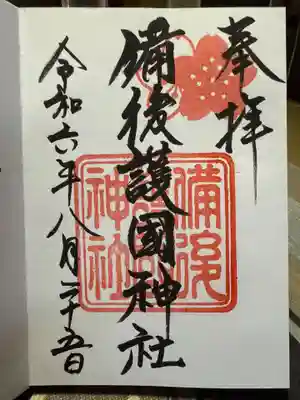 奉拝
備後護國神社
備後護國神社
令和六年八月二十五日